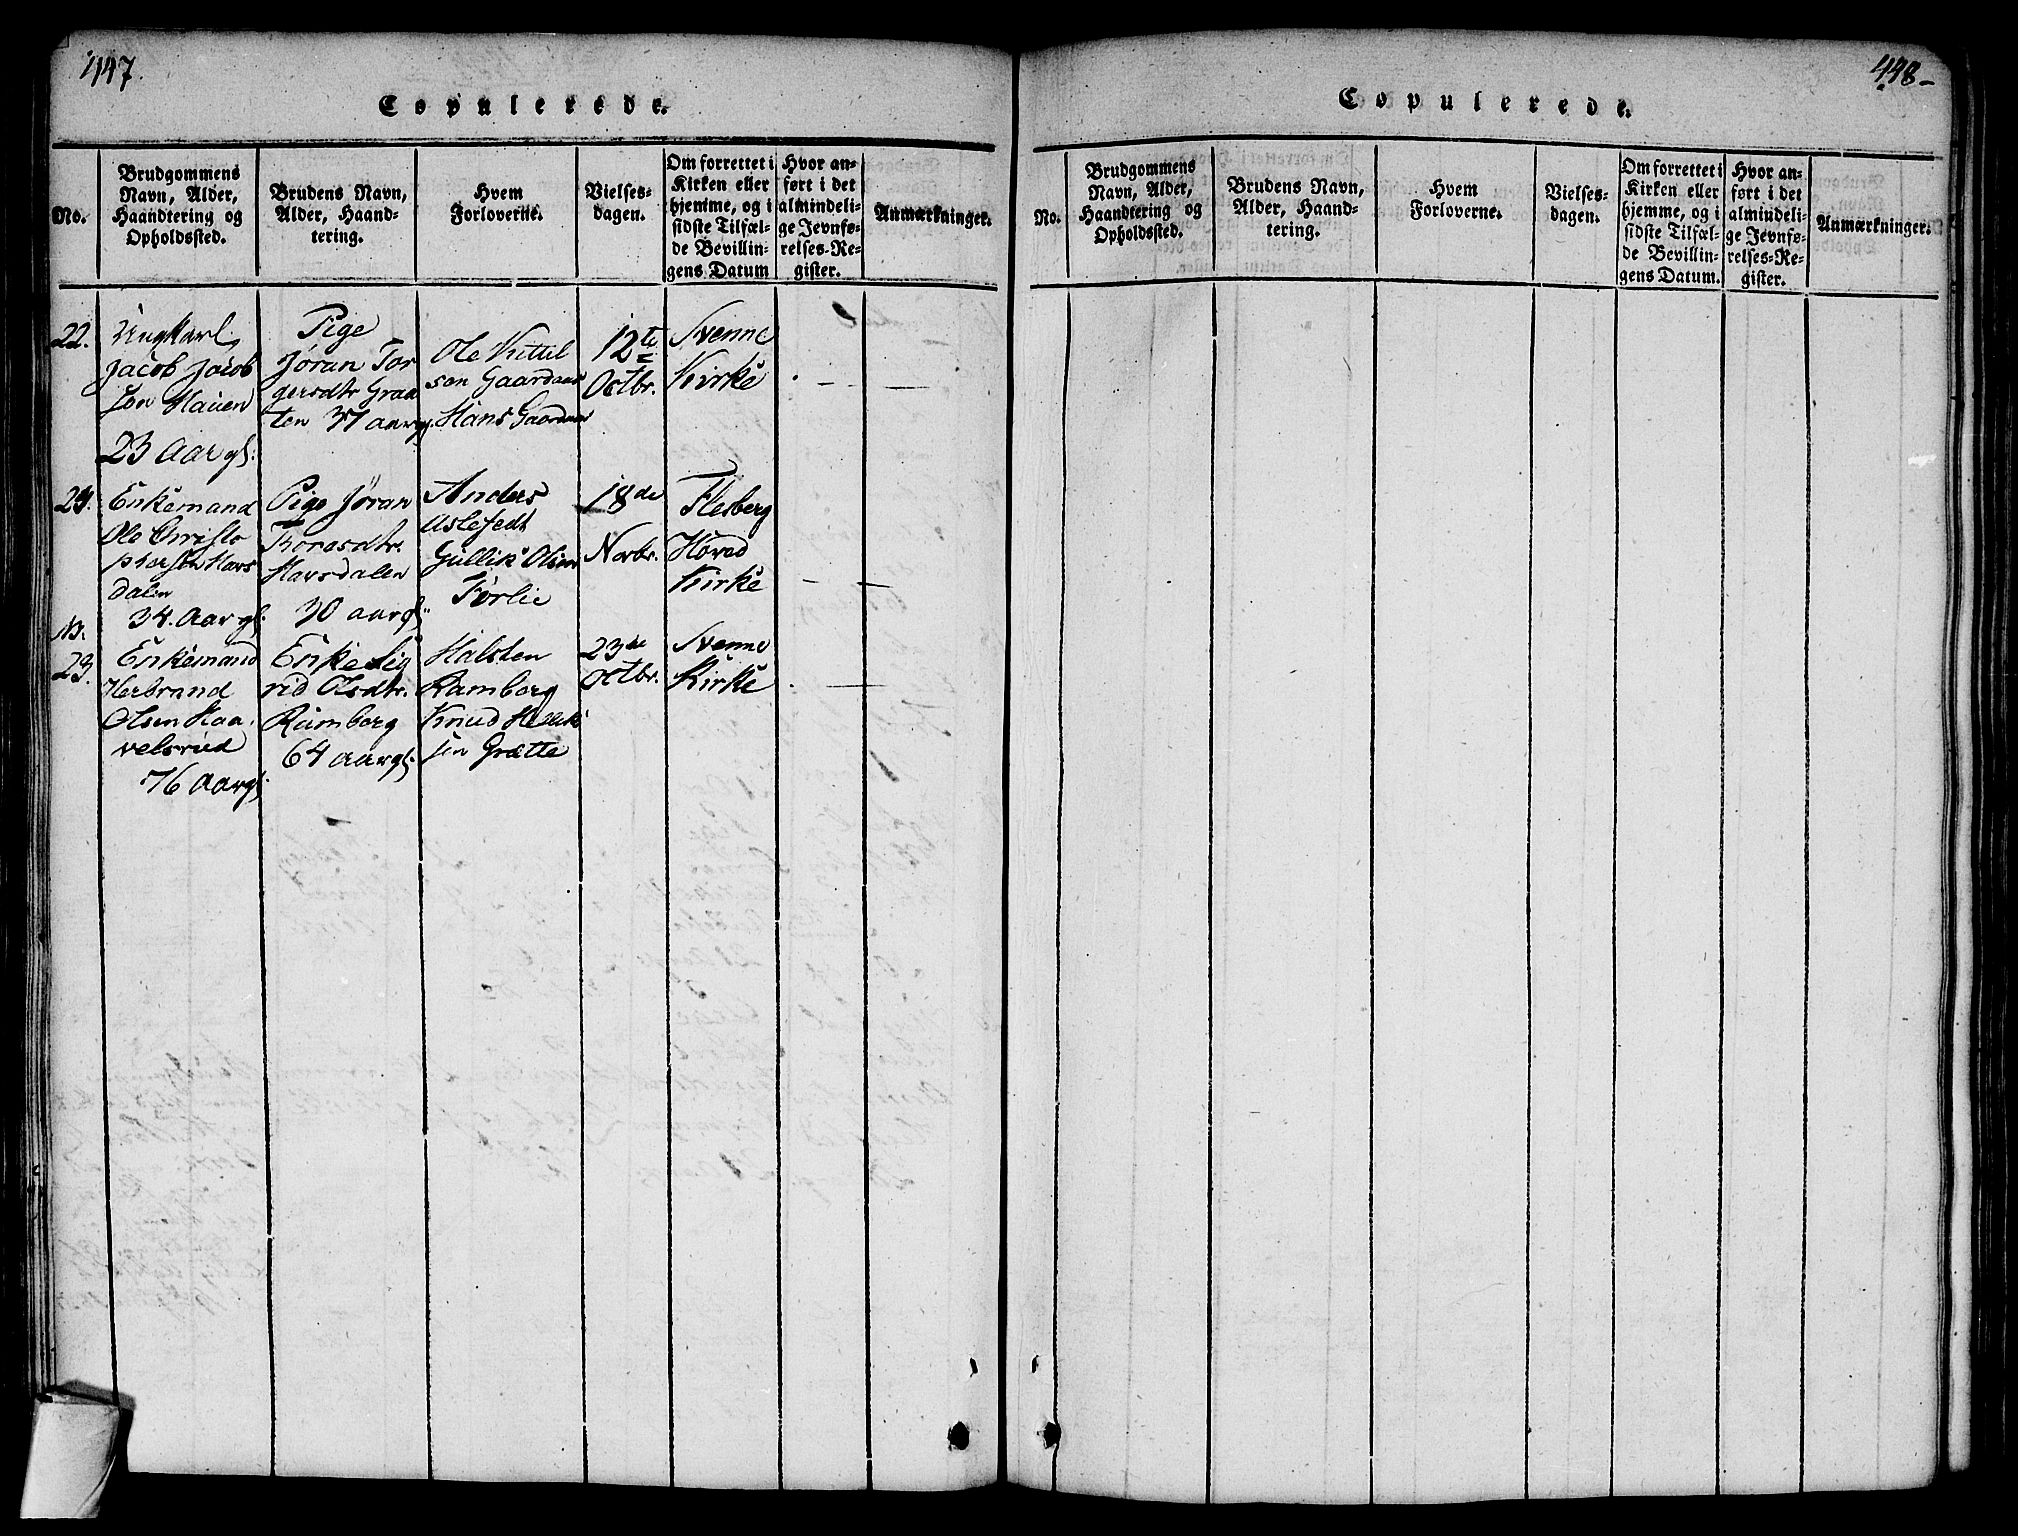 447.
Copulerede.
No.
Brudgommens
Navn, Alder,
Haandtering og
Opholdssted.
Brudens Navn,
Alder, Haand-
tering.
Hvem
Forloverne.
Vielses-
dagen.
Om forrettet i
Kirken eller
hjemme, og i
sidste Tilfæl-
de Bevillin-
gens Datum
Hvor an-
ført i det
almindeli-
ge Jevnfø-
relses-Re-
gister.
Anmærkninger.
22.
Ungkarl
Jacob Jacob
sen Hauen
23 Aar gl:
Pige
Jøran Tor
gersdtr Graa
ten 37 aargl.
Ole Kittil
sen Gaardaas
Hans Gaardaas
12te
Octbr.
Svenne
Kirke
24.
Enkemand
Ole Christo
phersen Havs
dalen
34. Aar gl.
Pige Jøran
Toresdtr.
Havsdalen
30 aargl:
Anders
Aslefedt
Gullik Olsen
Førlie
18de
Novbr.
Flesberg
Hoved
Kirke
No.
23.
Enkemand
Herbrand
Olsen Haa
velsrud
76 Aargl:
Enke Sig
rid Olsdtr.
Ramberg
64 aargl:
Halsten
Ramberg
Knud Hellik
sen Grætte
23de
Octbr.
Svenne
Kirke
448-
Copulerede.
No.
Brudgommens
Navn, Alder,
Haandtering og
Opholdssted.
Brudens Navn,
Alder, Haand-
tering.
Hvem
Forloverne.
Vielses-
dagen.
Om forrettet i
Kirken eller
hjemme, og i
sidste Tilfæl-
de Bevillin-
gens Datum.
Hvor an-
ført i det
almindeli-
ge Jevnfø-
relses-Re-
gister.
Anmærkninger.